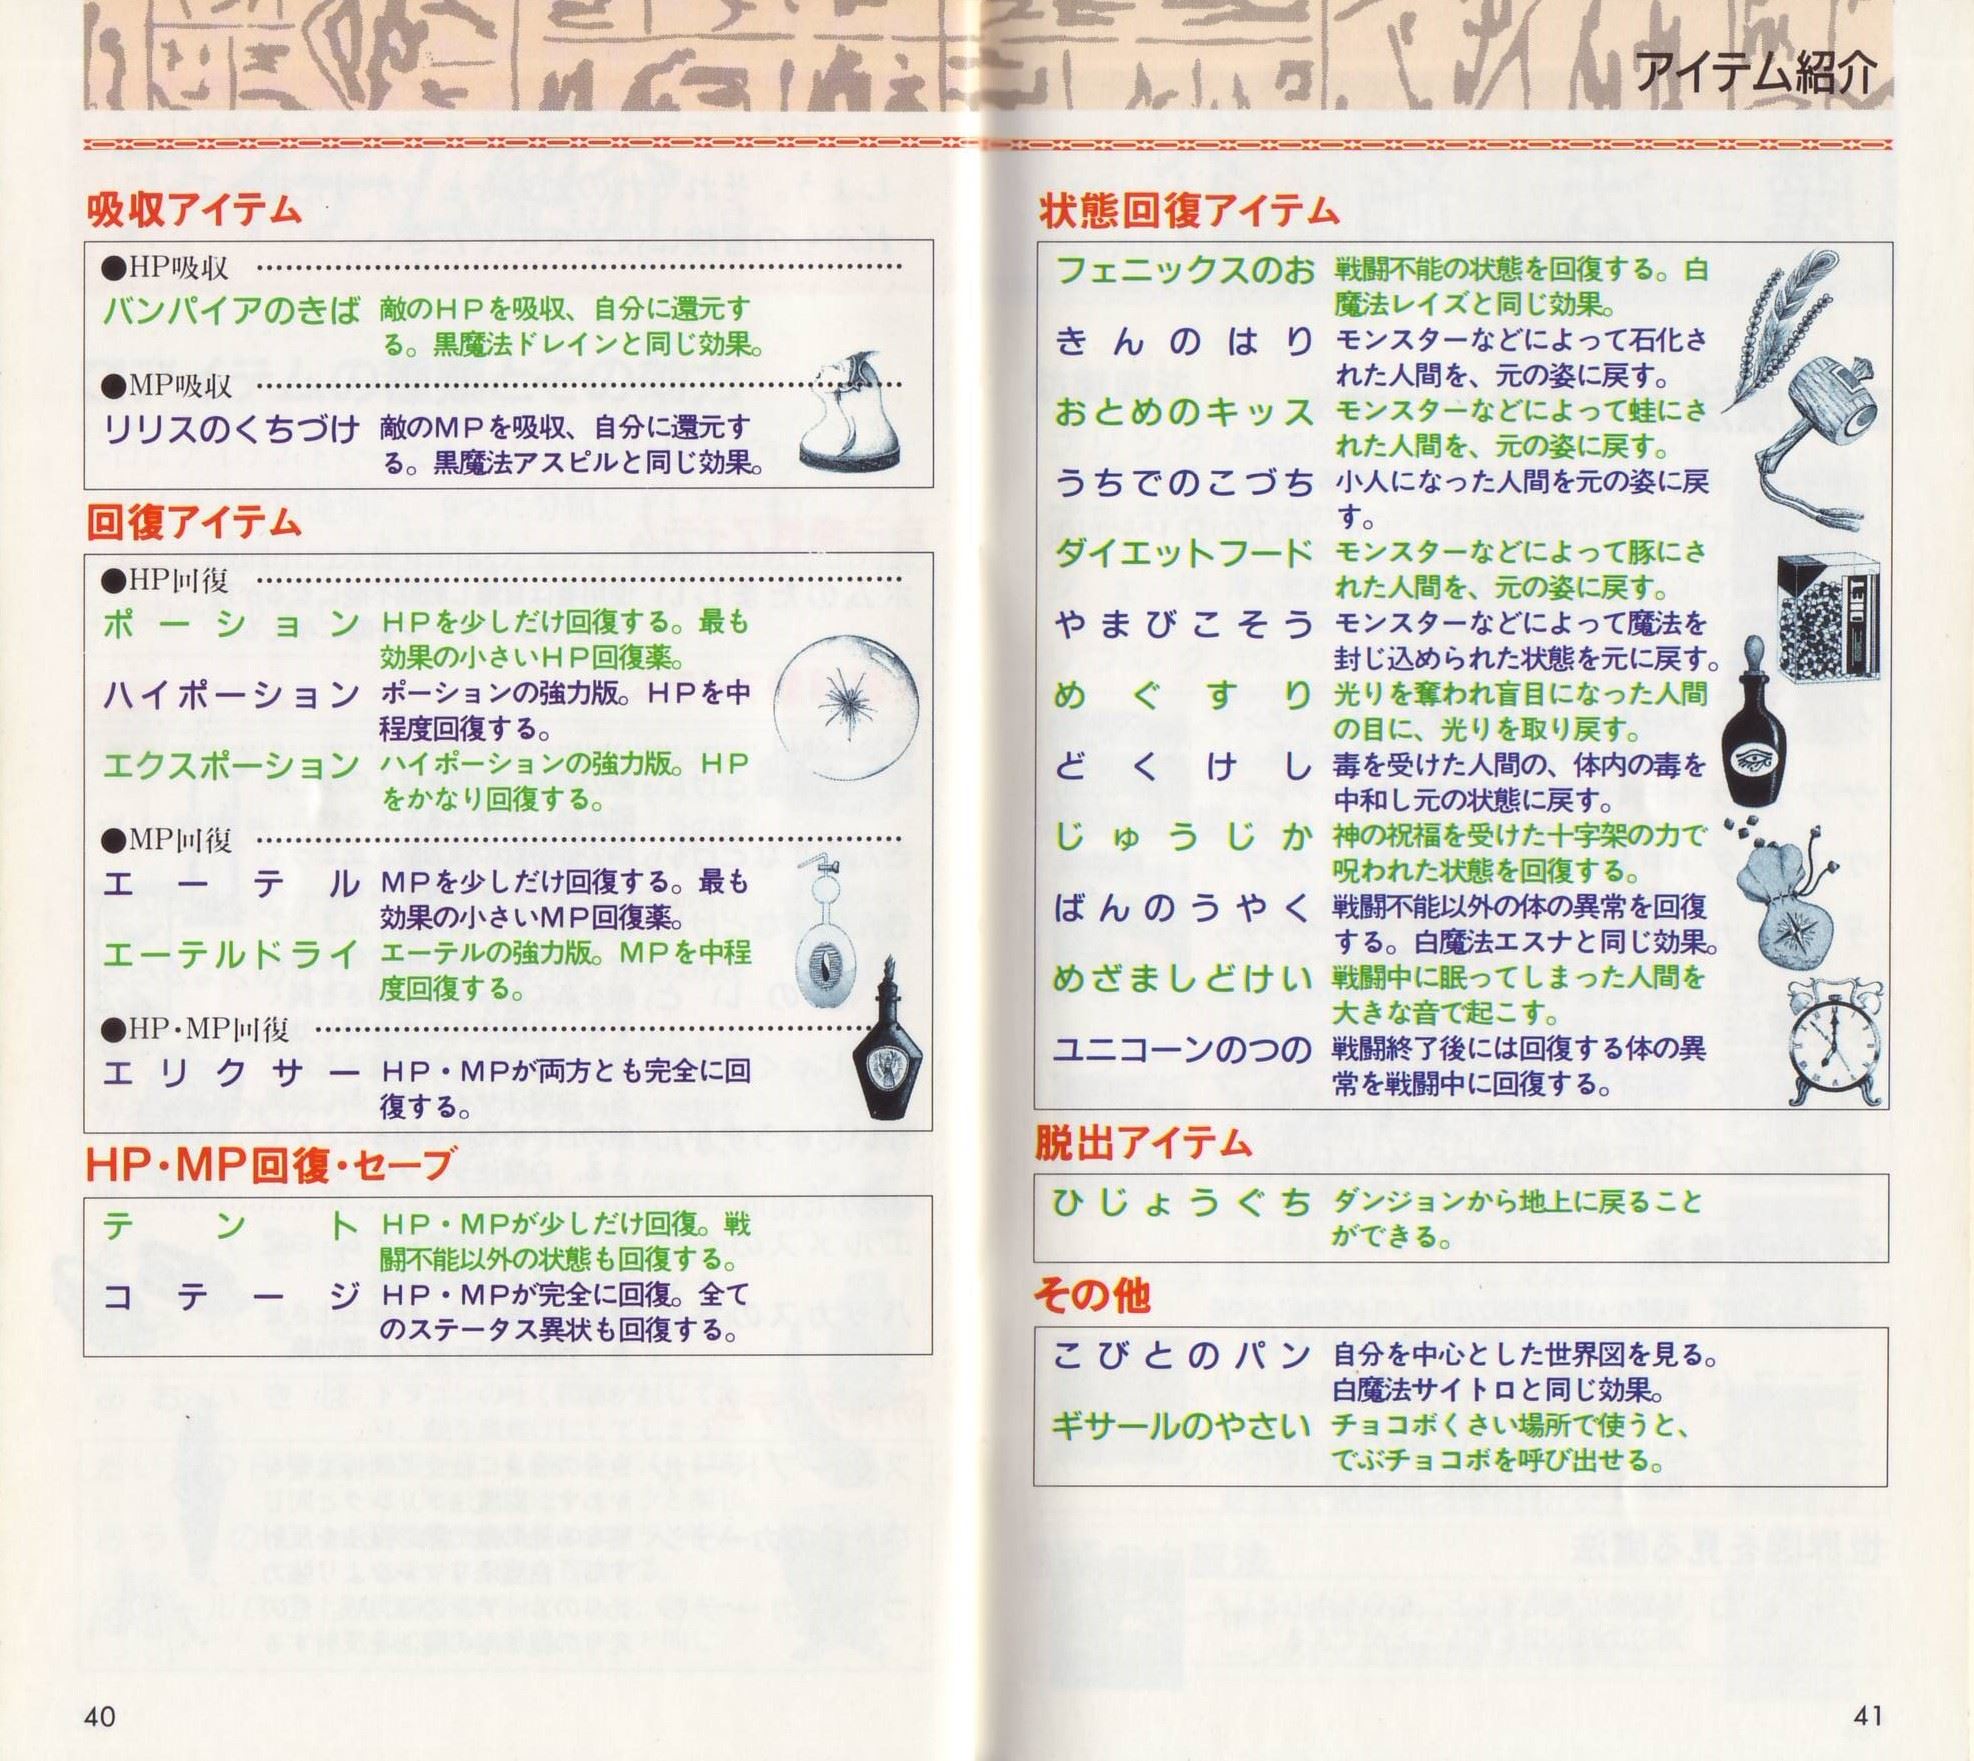 アイテム紹介
吸収アイテム
●HP吸収
バンパイアのきば 敵のHPを吸収、自分に還元す
る。黒魔法ドレインと同じ効果。
●MP吸収
リリスのくちづけ 敵のMPを吸収、自分に還元す
る。黒魔法アスピルと同じ効果。
回復アイテム
●HP回復
ポーション HPを少しだけ回復する。最も
効果の小さいHP回復薬。
ハイポーション ポーションの強力版。HPを中
程度回復する。
エクスポーション ハイポーションの強力版。HP
をかなり回復する。
●MP回復
エーテル MPを少しだけ回復する。最も
効果の小さいMP回復薬。
エーテルドライ エーテルの強力版。MPを中程
度回復する。
●HP・MP回復
エリクサー HP・MPが両方とも完全に回
復する。
HP・MP回復・セーブ
テント HP・MPが少しだけ回復。戦
闘不能以外の状態も回復する。
コテージ HP・MPが完全に回復。全て
のステータス異状も回復する。
40
状態回復アイテム
フェニックスのお 戦闘不能の状態を回復する。白
魔法レイズと同じ効果。
きんのはり モンスターなどによって石化さ
れた人間を、元の姿に戻す。
おとめのキッス モンスターなどによって蛙にさ
れた人間を、元の姿に戻す。
うちでのこづち 小人になった人間を元の姿に戻
す。
ダイエットフード モンスターなどによって豚にさ
れた人間を、元の姿に戻す。
やまびこそう モンスターなどによって魔法を
封じ込められた状態を元に戻す。
めぐすり 光りを奪われ盲目になった人間
の目に、光りを取り戻す。
どくけし 毒を受けた人間の、体内の毒を
中和し元の状態に戻す。
じゅうじか 神の祝福を受けた十字架の力で
呪われた状態を回復する。
ばんのうやく 戦闘不能以外の体の異常を回復
する。白魔法エスナと同じ効果。
めざましどけい 戦闘中に眠ってしまった人間を
大きな音で起こす。
ユニコーンのつの 戦闘終了後には回復する体の異
常を戦闘中に回復する。
脱出アイテム
ひじょうぐち ダンジョンから地上に戻ること
ができる。
その他
こびとのパン 自分を中心とした世界図を見る。
白魔法サイトロと同じ効果。
ギサールのやさい チョコボくさい場所で使うと、
でぶチョコボを呼び出せる。
41